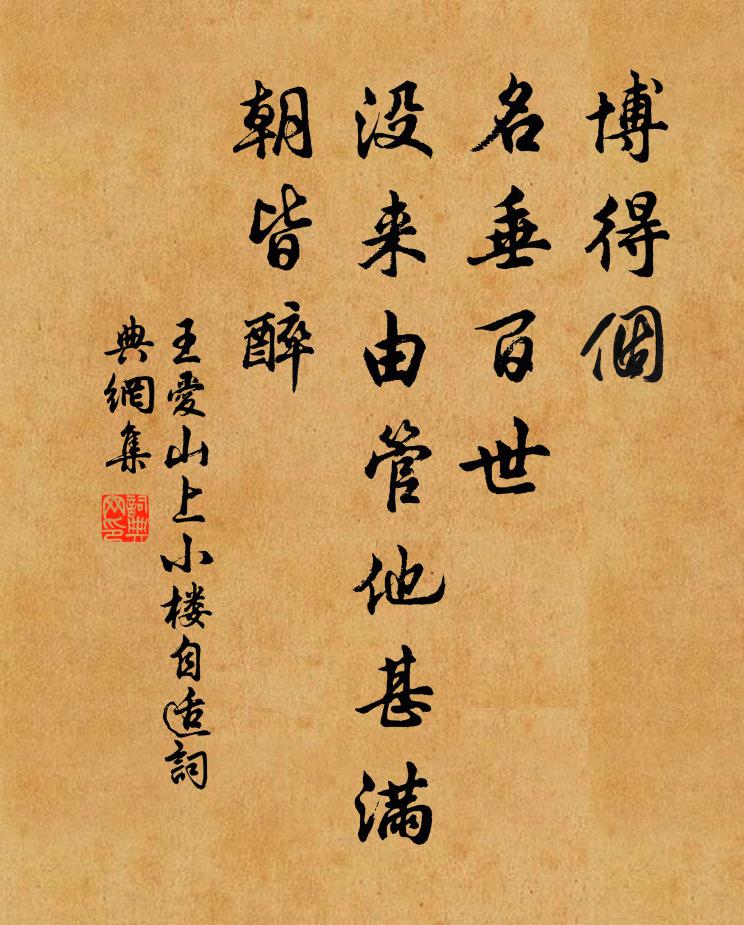 博得個
名垂百世
没来由管他甚满
朝皆醉
王爱山上小楼自适詞
典網集
詞典
网印